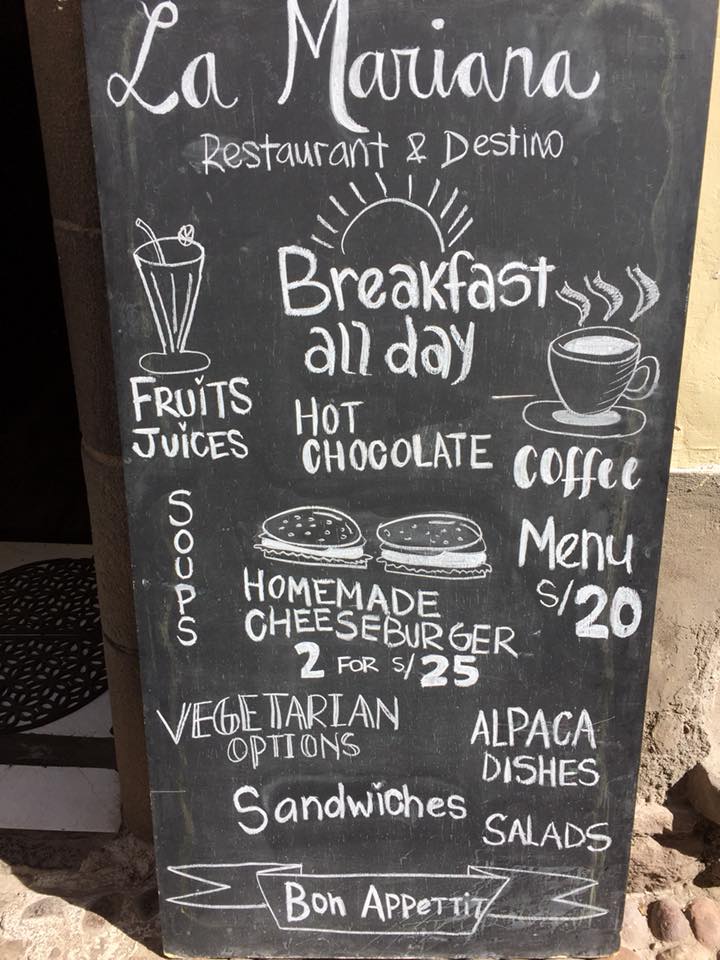 La Mariana
Restaurant & Destino
Breakfast
all day
FRUITS
JUICES
HOT
CHOCOLATE
coffee
SOUPS
Menu
S/20
HOMEMADE
CHEESEBURGER
2 FOR S/25
VEGETARIAN
OPTIONS
ALPACA
DISHES
Sandwiches
SALADS
Bon APPeTTiT